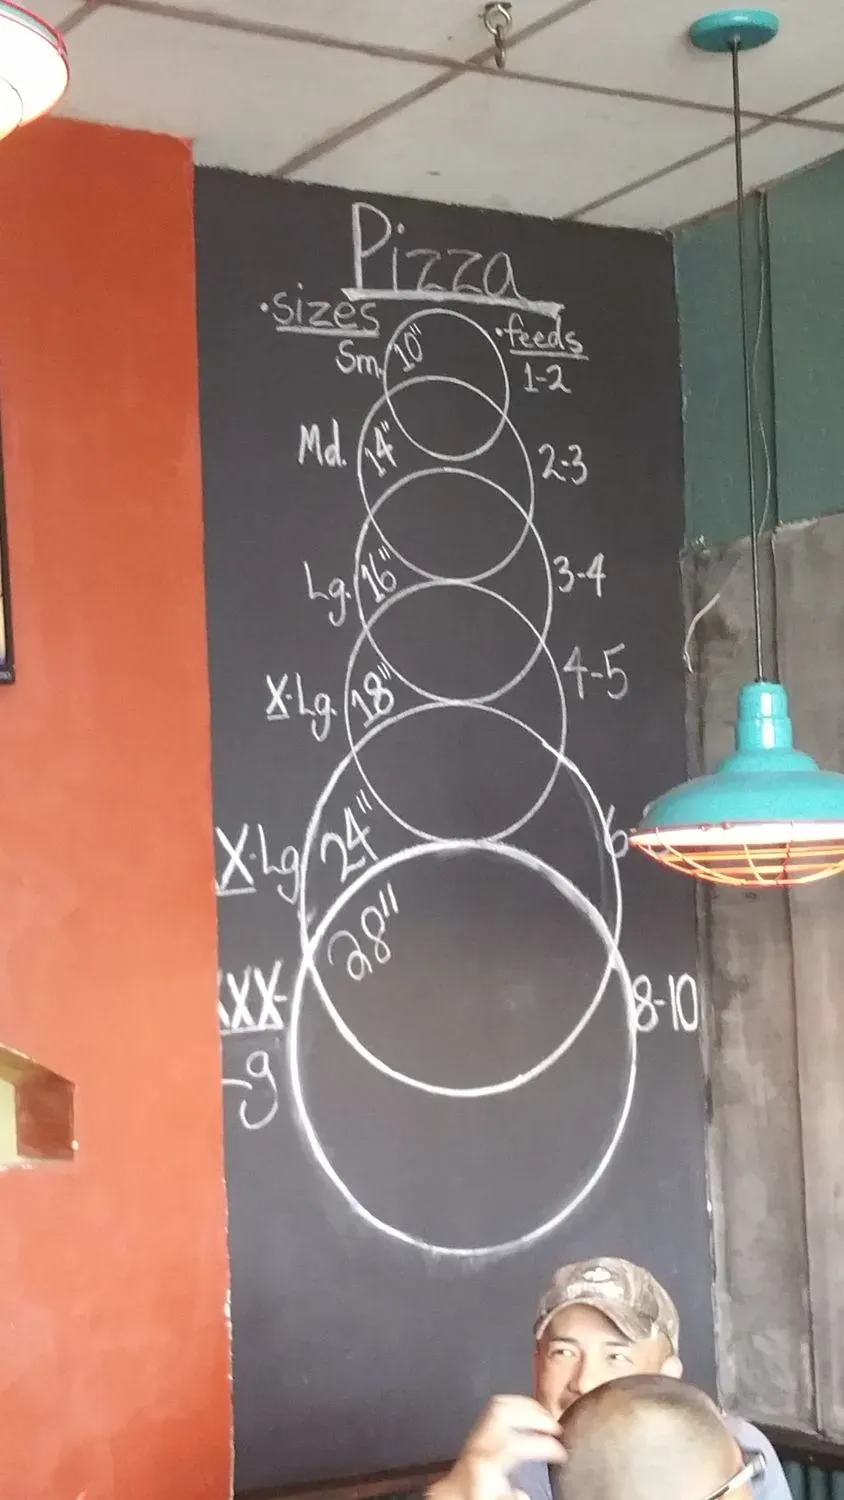 Pizza
•sizes •feeds
Sm. 10" 1-2
Md. 14" 2-3
Lg. 16" 3-4
X-Lg. 18" 4-5
X-Lg 24" 6
XXX- 28" 8-10
g